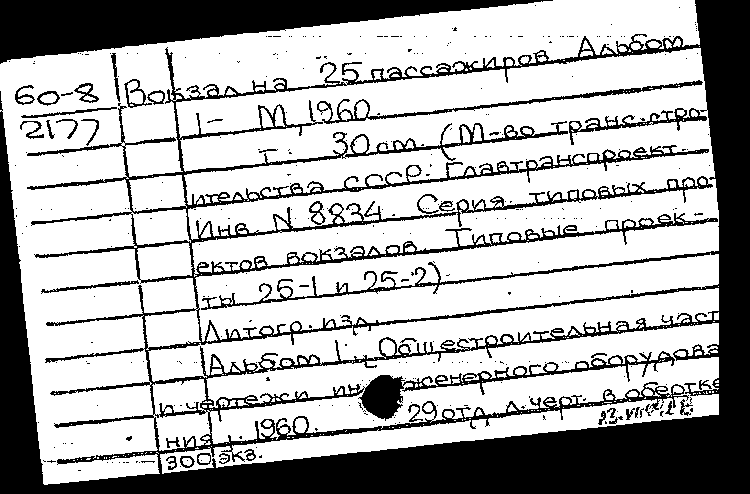 60-8
2177
Вокзал на 25 пассажиров Альбом
1- М, 1960.
т. 30 см. (М-во транс.стро-
ительства СССР. Главтранспроект.
Инв N 8834. Серия типовых про-
ектов вокзалов. Типовые проек-
ты 25-1 и 25-2)
Литогр. изд.
Альбом 1. Общестроительная част
и чертежи инженерного оборудова
ния. 1960. 29 отд. л. черт. в обертке
300 экз.